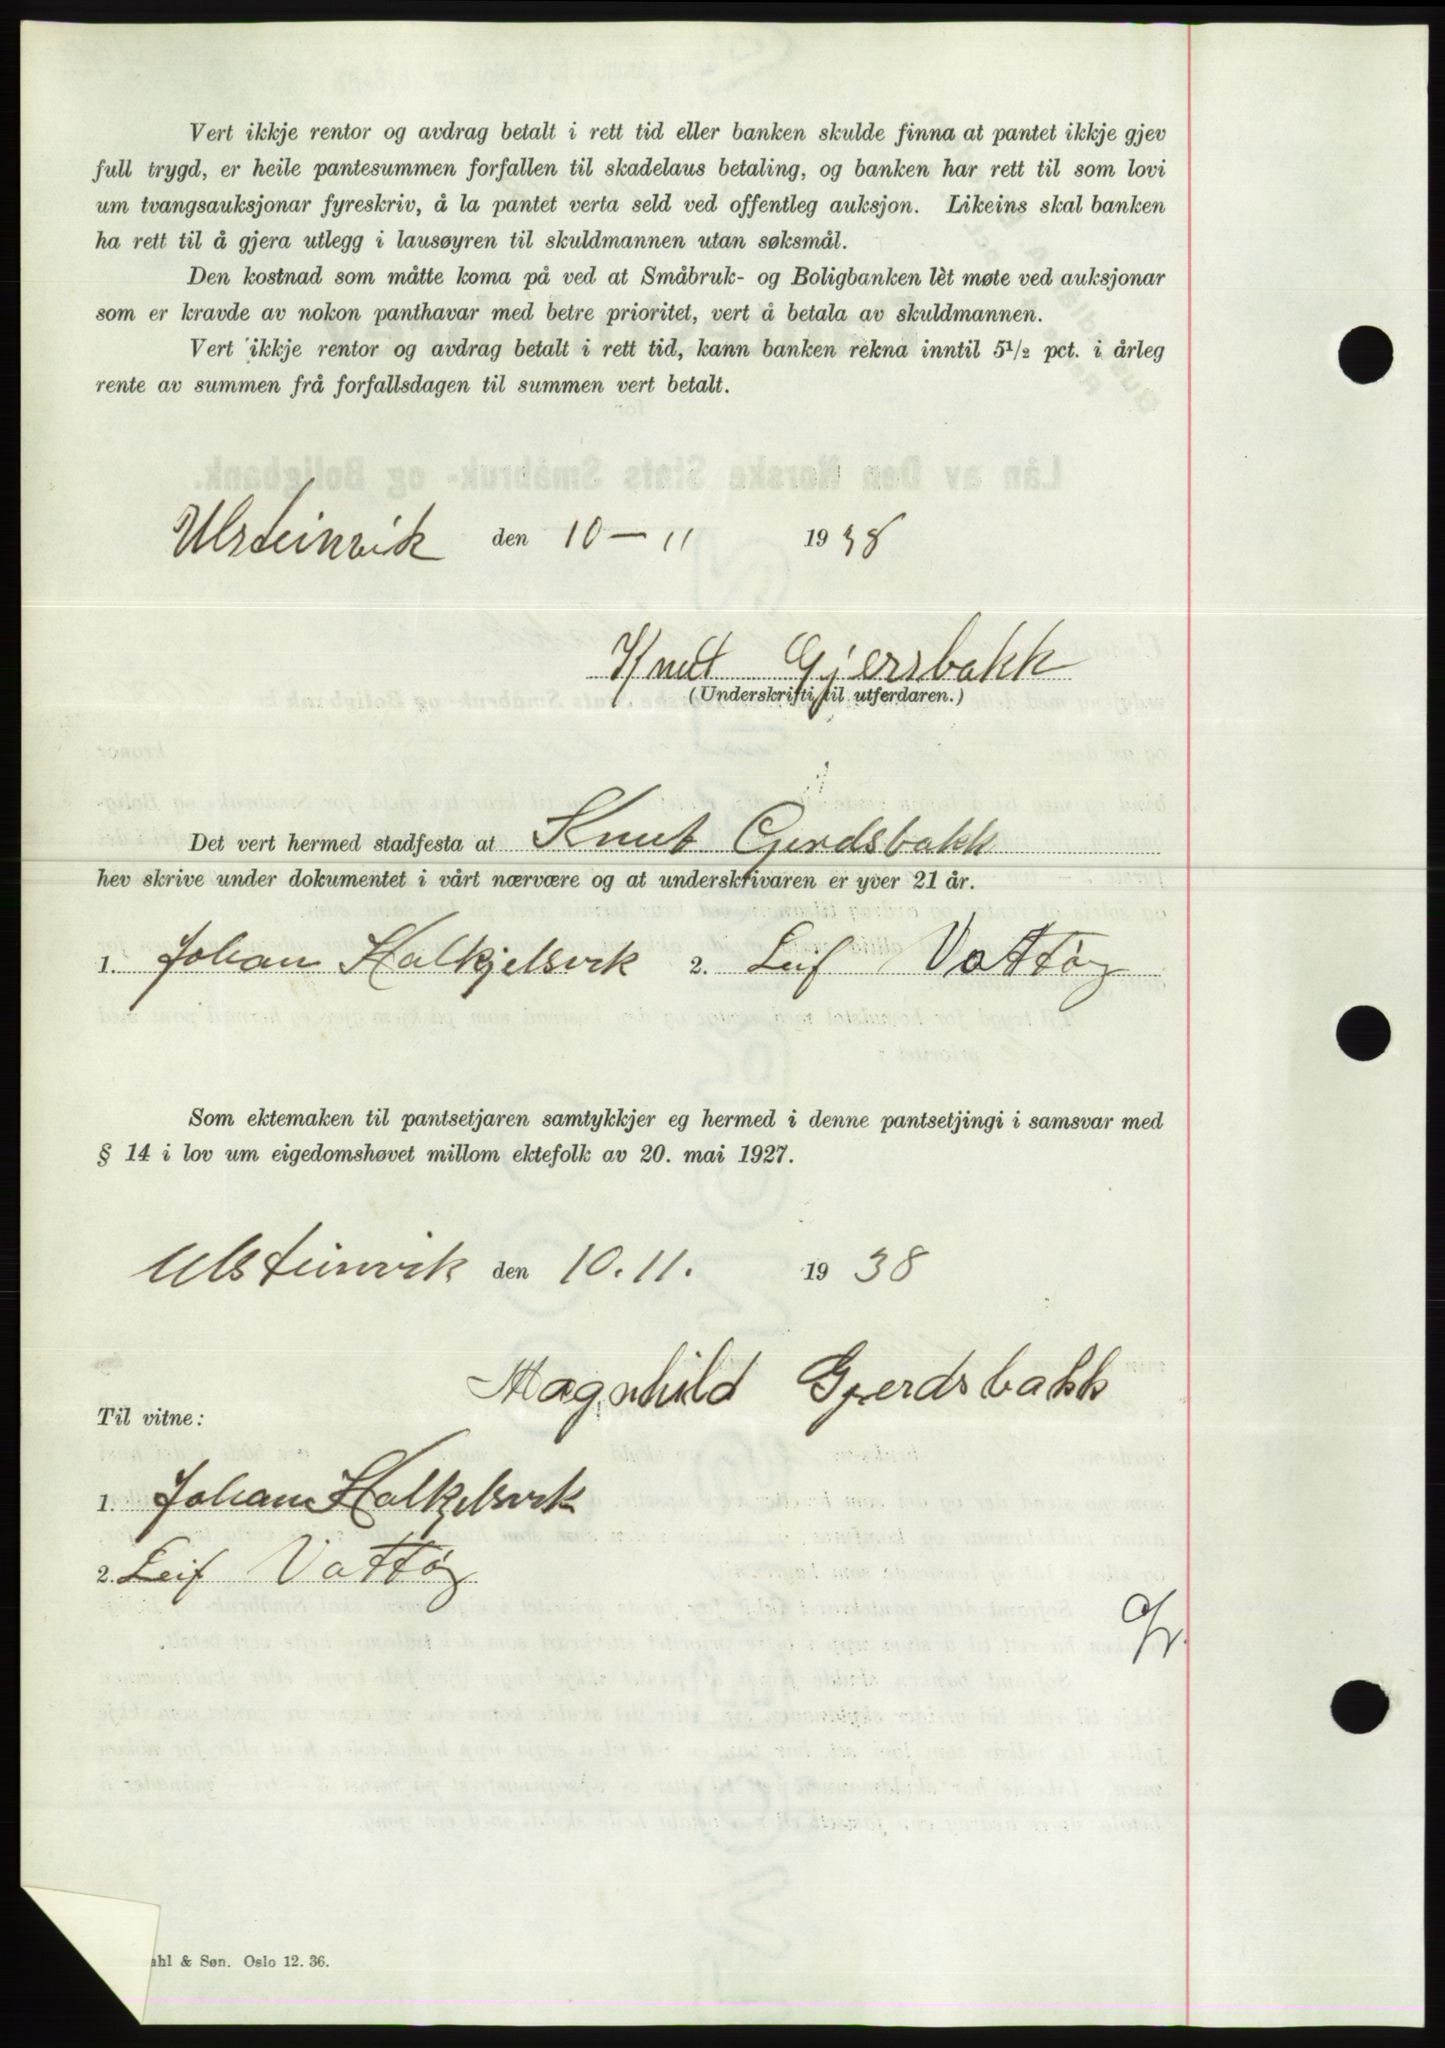 Vert ikkje rentor og avdrag betalt i rett tid eller banken skulde finna at pantet ikkje gjev
full trygd, er heile pantesummen forfallen til skadelaus betaling, og banken har rett til som lovi
um tvangsauksjonar fyreskriv, å la pantet verta seld ved offentleg auksjon. Likeins skal banken
ha rett til å gjera utlegg i lausøyren til skuldmannen utan søksmål.
Den kostnad som måtte koma på ved at Småbruk- og Boligbanken lèt møte ved auksjonar
som er kravde av nokon panthavar med betre prioritet, vert å betala av skuldmannen.
Vert ikkje rentor og avdrag betalt i rett tid, kann banken rekna inntil 5½ pct. i årleg
rente av summen frå forfallsdagen til summen vert betalt.
Ulsteinvik den 10 — 11 1938
Knut Gjersbakk
(Underskrifti til utferdaren.)
Det vert hermed stadfesta at Knut Gjerdsbakk
hev skrive under dokumentet i vårt nærvære og at underskrivaren er yver 21 år.
1. Johan Halkjelsvik 2. Leif Vattøy
Som ektemaken til pantsetjaren samtykkjer eg hermed i denne pantsetjingi i samsvar med
§ 14 i lov um eigedomshøvet millom ektefolk av 20. mai 1927.
Ulsteinvik den 10. 11. 1938
Magnhild Gjerdsbakk
Til vitne:
1. Johan Halkjelsvik
2. Leif Vattøy
ahl & Søn. Oslo 12. 36.